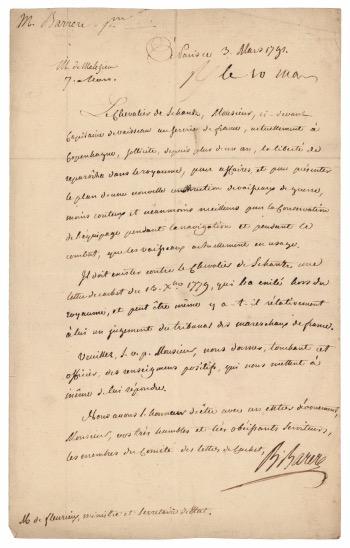 M. Barrere
à Paris ce 3. Mars 1791.
M. de
R. le 10 Mars
Le Chevalier de Schantz, Monsieur, ci-devant
Capitaine de vaisseau au service de france, actuellement à
Copenhague, sollicite, depuis plus d'un an, la liberté de
reparoître dans le royaume, pour affaires, et pour présenter
le plan d'une nouvelle construction de vaisseaux de guerre,
moins couteux et néanmoins meilleurs pour la conservation
de l'équipage pendant la navigation et pendant le
combat, que les vaisseaux actuellement en usage.
Il doit exister contre le Chevalier de Schantz une
lettre de cachet du 16. Xbre 1779, qui l'a exilé hors du
royaume, et peut être même y a-t-il relativement
à lui un jugement du tribunal des marechaux de france.
Veuillez, s. v. p. Monsieur, nous donner, touchant cet
officier, des renseignemens positifs, qui nous mettent à
même de lui répondre.
Nous avons l'honneur d'être avec un entier dévouement,
Monsieur, vos très humbles et très obéissants serviteurs,
les membres du Comité des lettres de cachet.
B. Barere
M. de fleurieu, ministre et secretaire d'Etat.